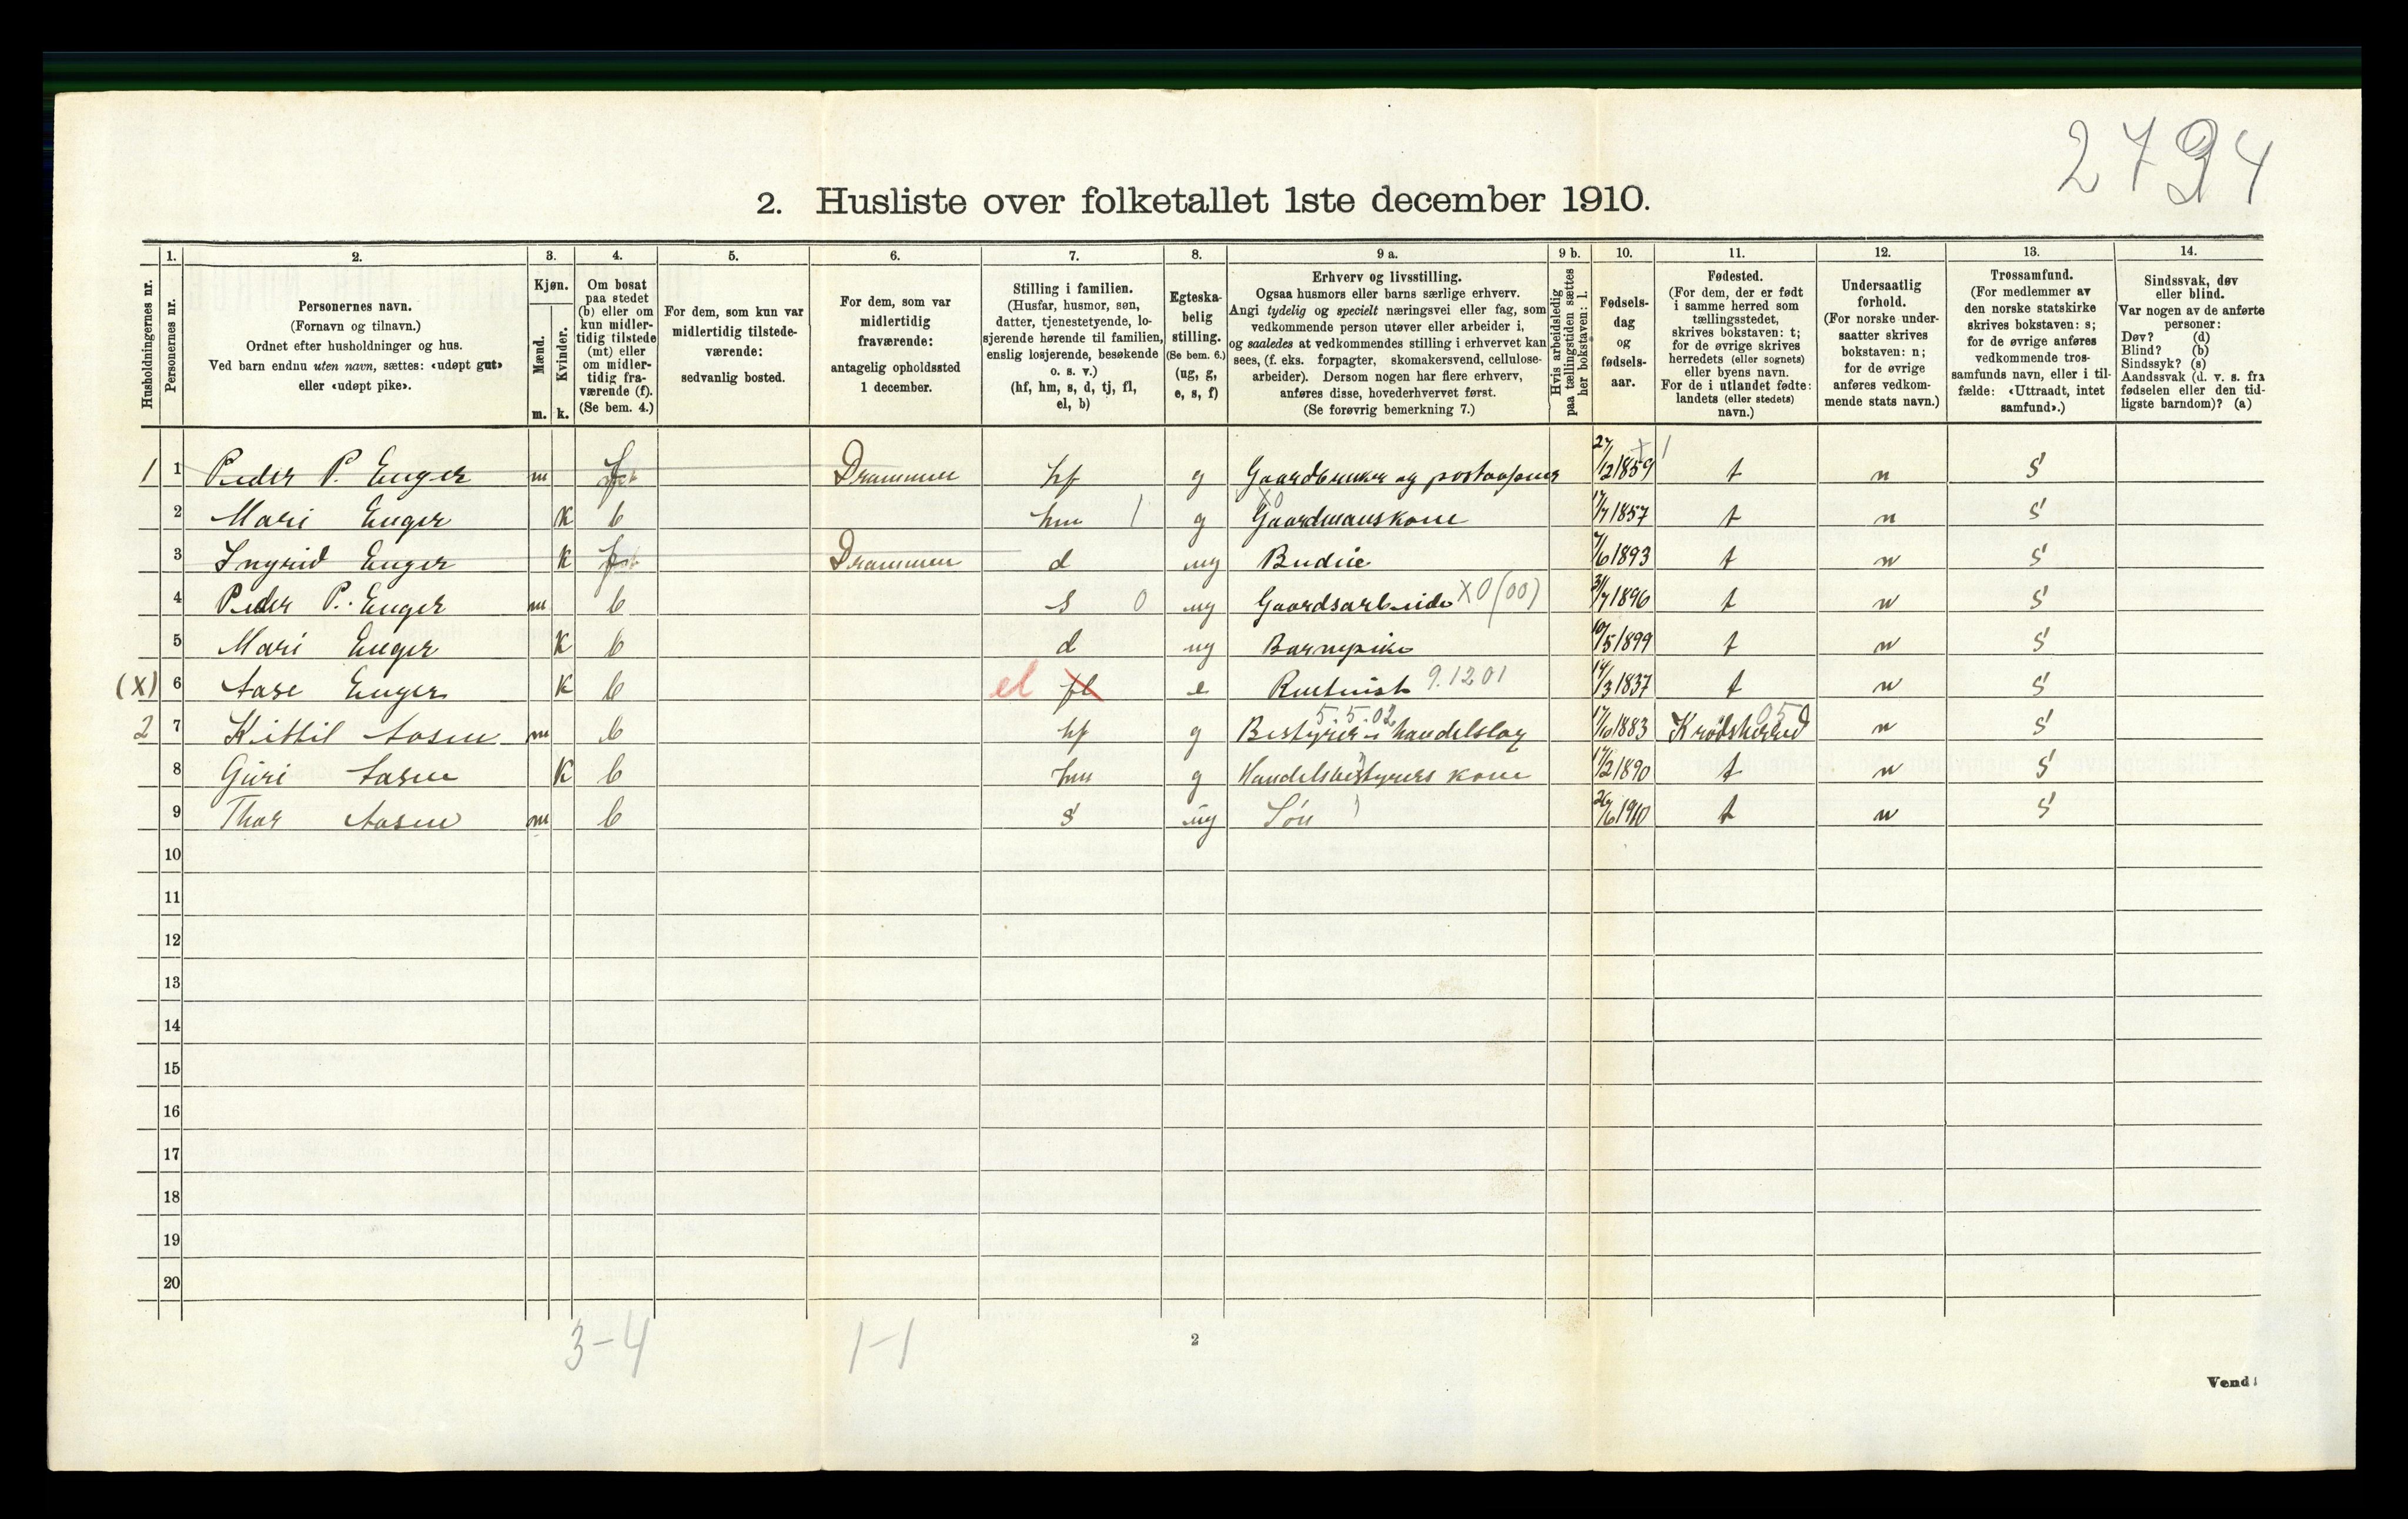 2794
2. Husliste over folketallet 1ste december 1910.
1. 2. 3. 4. 5. 6. 7. 8. 9 a. 9 b. 10. 11. 12. 13. 14.
Husholdningernes nr.
Personernes nr.
Personernes navn.
(Fornavn og tilnavn.)
Ordnet efter husholdninger og hus.
Ved barn endnu uten navn, sættes: «udøpt gut»
eller «udøpt pike».
Kjøn.
Mænd.
m.
Kvinder.
k.
Om bosat
paa stedet
(b) eller om
kun midler-
tidig tilstede
(mt) eller
om midler-
tidig fra-
værende (f).
(Se bem. 4.)
For dem, som kun var
midlertidig tilstede-
værende:
sedvanlig bosted.
For dem, som var
midlertidig
fraværende:
antagelig opholdssted
1 december.
Stilling i familien.
(Husfar, husmor, søn,
datter, tjenestetyende, lo-
sjerende hørende til familien,
enslig losjerende, besøkende
o. s. v.)
(hf, hm, s, d, tj, fl,
el, b)
Egteska-
belig
stilling.
(Se bem. 6.)
(ug, g,
e, s, f)
Erhverv og livsstilling.
Ogsaa husmors eller barns særlige erhverv.
Angi tydelig og specielt næringsvei eller fag, som
vedkommende person utøver eller arbeider i,
og saaledes at vedkommendes stilling i erhvervet kan
sees, (f. eks. forpagter, skomakersvend, cellulose-
arbeider). Dersom nogen har flere erhverv,
anføres disse, hovederhvervet først.
(Se forøvrig bemerkning 7.)
Hvis arbeidsledig
paa tællingstiden sættes
her bokstaven: l.
Fødsels-
dag
og
fødsels-
aar.
Fødested.
(For dem, der er født
i samme herred som
tællingsstedet,
skrives bokstaven: t;
for de øvrige skrives
herredets (eller sognets)
eller byens navn.
For de i utlandet fødte:
landets (eller stedets)
navn.)
Undersaatlig
forhold.
(For norske under-
saatter skrives
bokstaven: n;
for de øvrige
anføres vedkom-
mende stats navn.)
Trossamfund.
(For medlemmer av
den norske statskirke
skrives bokstaven: s;
for de øvrige anføres
vedkommende tros-
samfunds navn, eller i til-
fælde: «Uttraadt, intet
samfund».)
Sindssvak, døv
eller blind.
Var nogen av de anførte
personer:
Døv? (d)
Blind? (b)
Sindssyk? (s)
Aandssvak (d. v. s. fra
fødselen eller den tid-
ligste barndom)? (a)
1 1 Peder P. Enger m Drammen hf g Gaardbruker og postaapner 27/12 1859 t n s
2 Mari Enger k b hm 1 g Gaardmanskone x0 17/7 1857 t n s
3 Ingrid Enger k Drammen d ug Budeie 7/6 1893 t n s
4 Peder P. Enger m b s 0 ug Gaardsarbeide x0(00) 31/7 1896 t n s
5 Mari Enger k b d ug Barnepike 10/5 1899 t n s
(x) 6 Aase Enger k b el fl e 9.12 01 14/3 1837 t n s
2 7 Kittil Aasen m b hf g Bestyrer i handelslag 5.5.02 1883 Krødsherred 050 n s
8 Guri Aasen k b hm g Handelsbestyrers kone 17/2 1890 t n s
9 Thor Aasen m b s ug Søn 26/6 1910 t n s
10
11
12
13
14
15
16
17
18
19
20
3-4 1-1
2
Vend!